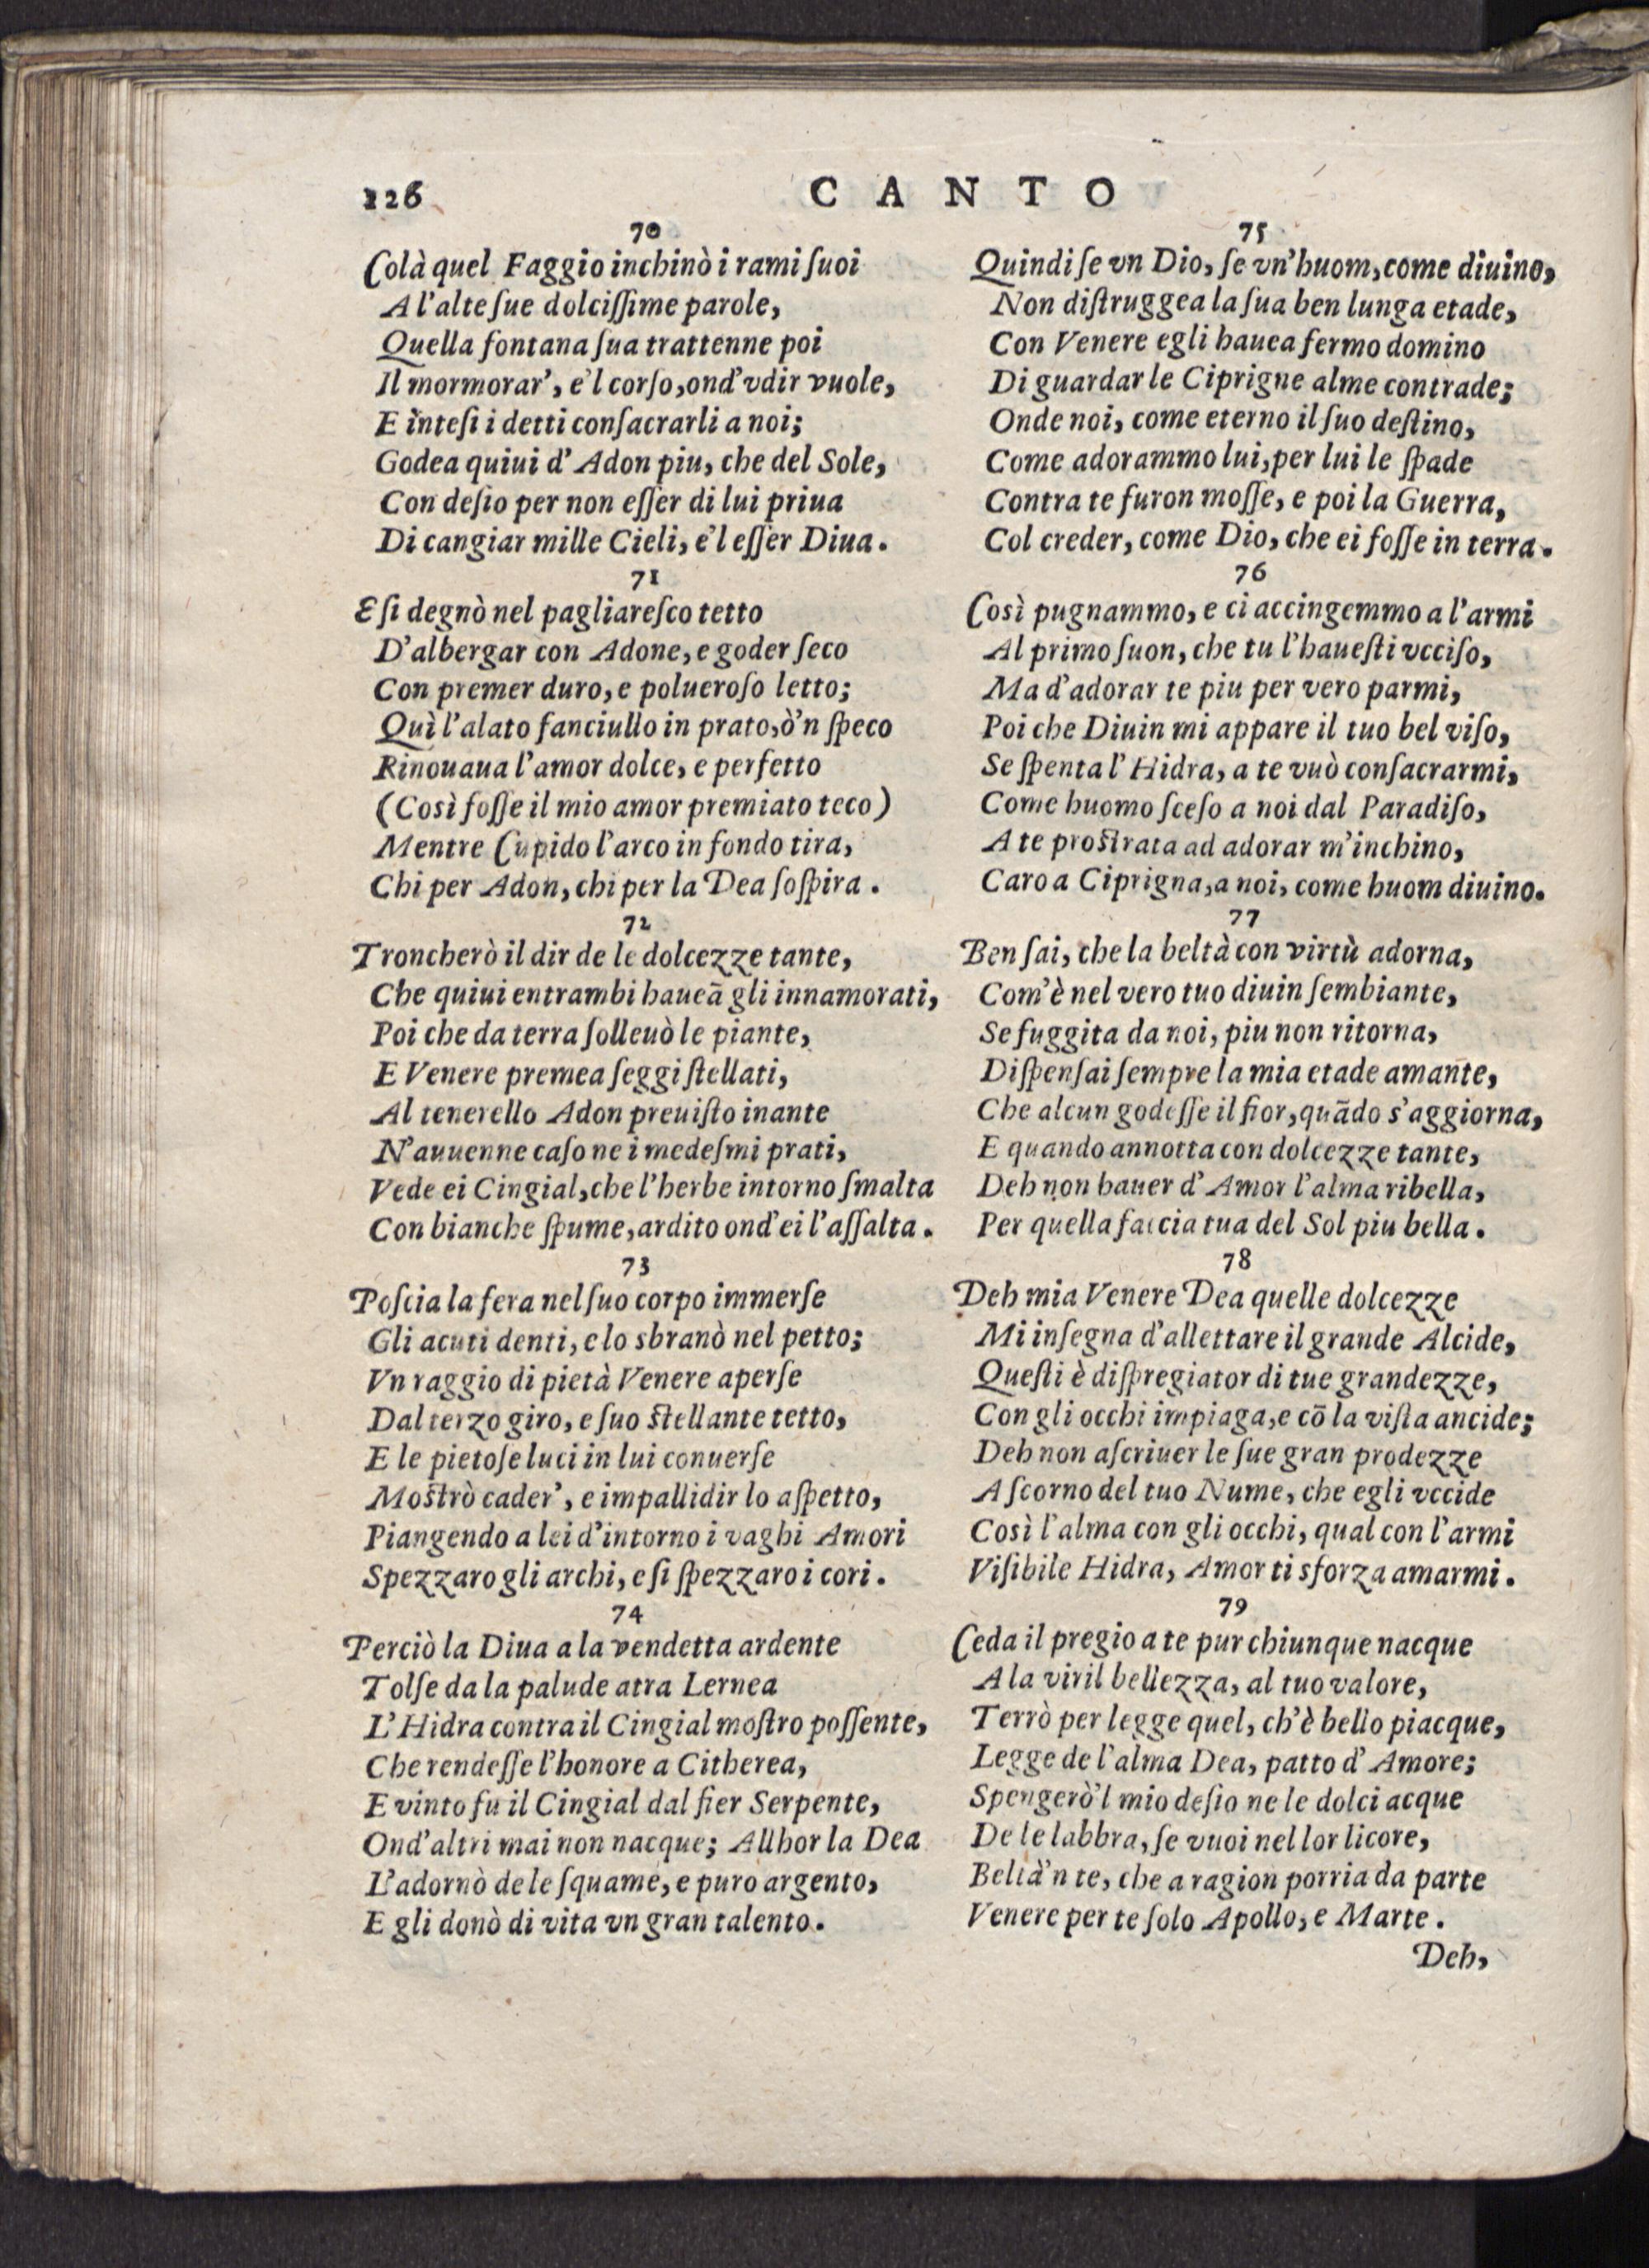 126
CANTO
70
Colà quel Faggio inchinò i rami ſuoi
A l'alte ſue dolciſſime parole,
Quella fontana ſua trattenne poi
Il mormorar', e'l corſo, ond'vdir vuole,
E inteſi i detti conſacrarli a noi;
Godea quiui d'Adon piu, che del Sole,
Con deſio per non eſſer di lui priua
Di cangiar mille Cieli, e'l eſſer Diua.
71
E ſi degnò nel pagliareſco tetto
D'albergar con Adone, e goder ſeco
Con premer duro, e polueroſo letto;
Quì l'alato fanciullo in prato, ò'n ſpeco
Rinouaua l'amor dolce, e perfetto
(Così foſſe il mio amor premiato teco)
Mentre Cupido l'arco in fondo tira,
Chi per Adon, chi per la Dea ſoſpira.
72
Troncherò il dir de le dolcezze tante,
Che quiui entrambi haueā gli innamorati,
Poi che da terra ſolleuò le piante,
E Venere premea ſeggi ſtellati,
Al tenerello Adon preuiſto inante
N'auuenne caſo ne i medeſmi prati,
Vede ei Cingial, che l'herbe intorno ſmalta
Con bianche ſpume, ardito ond'ei l'aſſalta.
73
Poſcia la fera nel ſuo corpo immerſe
Gli acuti denti, e lo sbranò nel petto;
Vn raggio di pietà Venere aperſe
Dal terzo giro, e ſuo ſtellante tetto,
E le pietoſe luci in lui conuerſe
Moſtrò cader', e impallidir lo aſpetto,
Piangendo a lei d'intorno i vaghi Amori
Spezzaro gli archi, e ſi ſpezzaro i cori.
74
Perciò la Diua a la vendetta ardente
Tolſe da la palude atra Lernea
L'Hidra contra il Cingial moſtro poſſente,
Che rendeſſe l'honore a Citherea,
E vinto fu il Cingial dal fier Serpente,
Ond'altri mai non nacque; Allhor la Dea
L'adornò de le ſquame, e puro argento,
E gli donò di vita vn gran talento.
75
Quindi ſe vn Dio, ſe vn'huom, come diuino,
Non diſtruggea la ſua ben lunga etade,
Con Venere egli hauea fermo domino
Di guardar le Ciprigne alme contrade;
Onde noi, come eterno il ſuo deſtino,
Come adorammo lui, per lui le ſpade
Contra te furon moſſe, e poi la Guerra,
Col creder, come Dio, che ei foſſe in terra.
76
Così pugnammo, e ci accingemmo a l'armi
Al primo ſuon, che tu l'haueſti vcciſo,
Ma d'adorar te piu per vero parmi,
Poi che Diuin mi appare il tuo bel viſo,
Se ſpenta l'Hidra, a te vuò conſacrarmi,
Come huomo ſceſo a noi dal Paradiſo,
A te proſtrata ad adorar m'inchino,
Caro a Ciprigna, a noi, come huom diuino.
77
Ben ſai, che la beltà con virtù adorna,
Com'è nel vero tuo diuin ſembiante,
Se fuggita da noi, piu non ritorna,
Diſpenſai ſempre la mia etade amante,
Che alcun godeſſe il fior, quādo s'aggiorna,
E quando annotta con dolcezze tante,
Deh non hauer d'Amor l'alma ribella,
Per quella faccia tua del Sol piu bella.
78
Deh mia Venere Dea quelle dolcezze
Mi inſegna d'allettare il grande Alcide,
Queſti è diſpregiator di tue grandezze,
Con gli occhi impiaga, e cō la viſta ancide;
Deh non aſcriuer le ſue gran prodezze
A ſcorno del tuo Nume, che egli vccide
Così l'alma con gli occhi, qual con l'armi
Viſibile Hidra, Amor ti sforza amarmi.
79
Ceda il pregio a te pur chiunque nacque
A la viril bellezza, al tuo valore,
Terrò per legge quel, ch'è bello piacque,
Legge de l'alma Dea, patto d'Amore;
Spengerò'l mio deſio ne le dolci acque
De le labbra, ſe vuoi nel lor licore,
Beltà'n te, che a ragion porria da parte
Venere per te ſolo Apollo, e Marte.
Deh,